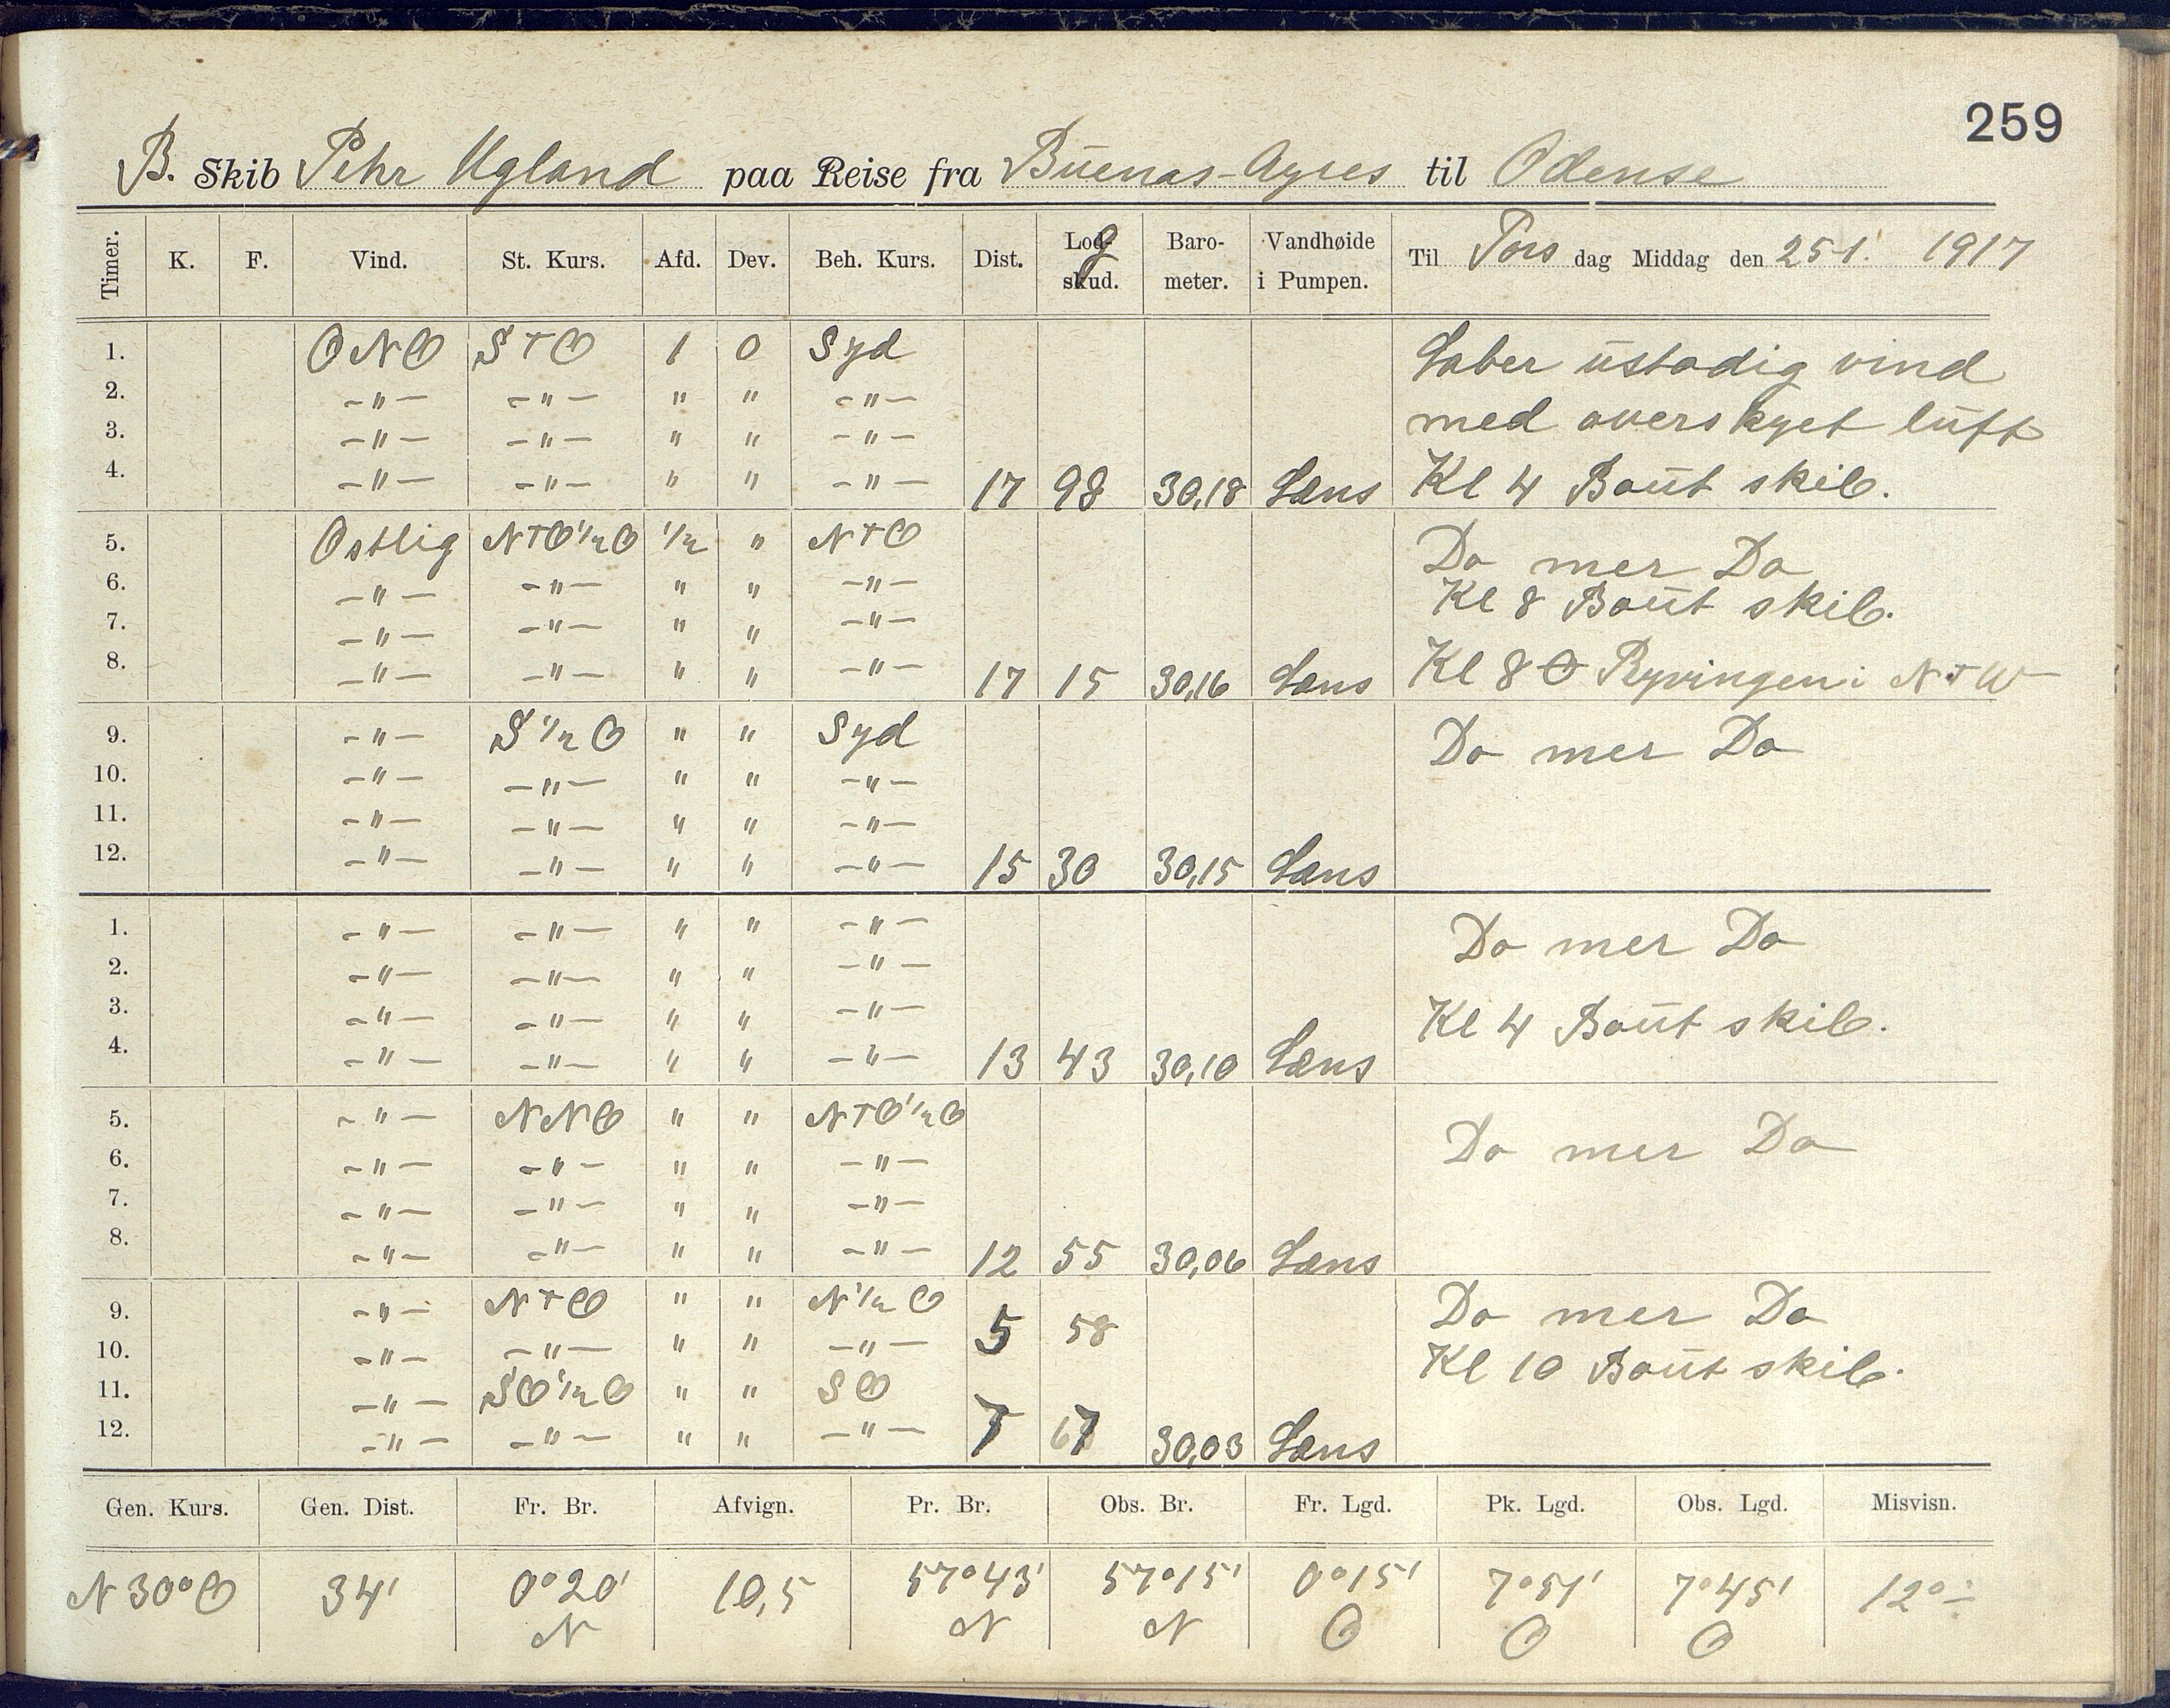 259
B. Skib Pehr Ugland paa Reise fra Buenas-Ayres til Odense
Timer. K. F. Vind. St. Kurs. Afd. Dev. Beh. Kurs. Dist. Log-skud. Baro-meter. Vandhøide i Pumpen. Til Tors dag Middag den 25-1. 1917
1. ONO StO 1 0 Syd Laber ustadig vind
2. -"- -"- " " -"- med overskyet luft
3. -"- -"- " " -"-
4. -"- -"- " " -"- 17 98 30,18 Læns Kl 4 Bout skib.
5. Ostlig NtO½O ½ " NtO Do mer Do
6. -"- -"- " " -"- Kl 8 Bout skib.
7. -"- -"- " " -"-
8. -"- -"- " " -"- 17 15 30,16 Læns Kl 8 Ryvingen i NtW
9. -"- S½O " " Syd Do mer Do
10. -"- -"- " " -"-
11. -"- -"- " " -"-
12. -"- -"- " " -"- 15 30 30,15 Læns
1. -"- -"- " " -"- Do mer Do
2. -"- -"- " " -"-
3. -"- -"- " " -"- Kl 4 Bout skib.
4. -"- -"- " " -"- 13 43 30,10 Læns
5. -"- NNO " " NtO½O Do mer Do
6. -"- -"- " " -"-
7. -"- -"- " " -"-
8. -"- -"- " " -"- 12 55 30,06 Læns
9. -"- NtO " " N½O 5 58 Do mer Do
10. -"- -"- " " -"- Kl 10 Bout skib.
11. -"- SO½O " " SO
12. -"- -"- " " -"- 7 67 30,03 Læns
Gen. Kurs. Gen. Dist. Fr. Br. Afvign. Pr. Br. Obs. Br. Fr. Lgd. Pk. Lgd. Obs. Lgd. Misvisn.
N 30° O 34' 0°20' N 10,5 57°43' N 57°15' N 0°15' O 7°51' O 7°45' O 12°